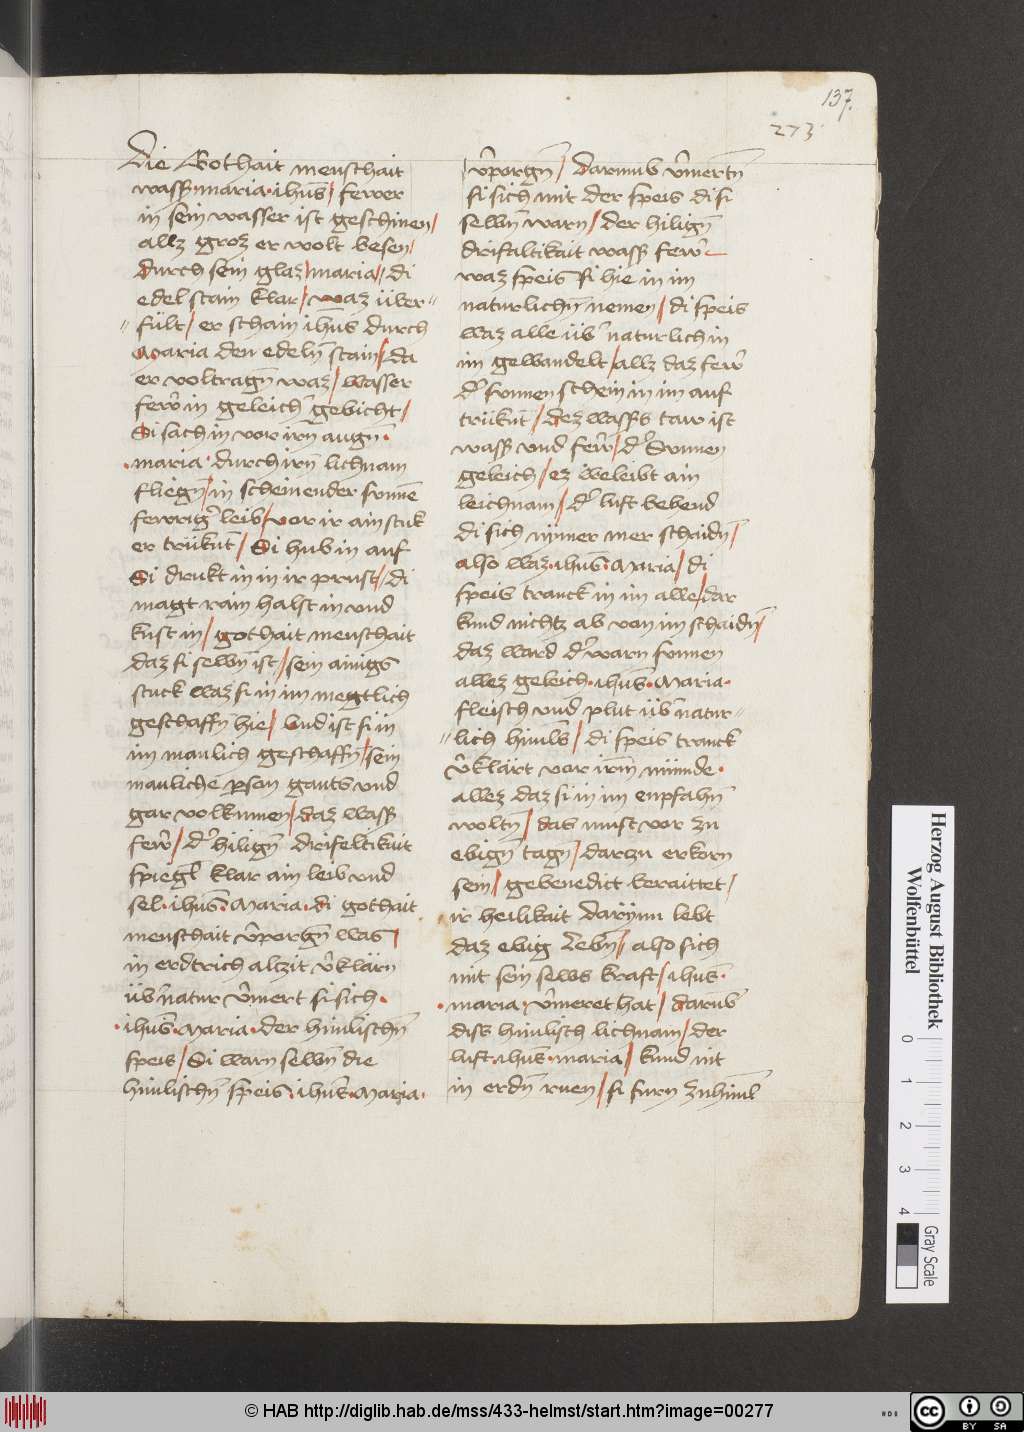 137.
273
Die Gothait menschait
wasß maria · ihūs / fewer
in sein wasser ist geschinen /
allz groz er wolt besen /
durch sein glaz / maria // di
edel stain klar / waz über //
// fült / er schain ihūs durch
Maria den edelñ stain / da
er voltragñ waz / wasser
feẅr in geleicħ gebicht /
Si sach in vor irñ augñ ·
· maria · durch irñ lichnam
fliegñ / in scheinender sunnē
fewrigˀ leib / vor ir ain stuk
er trükūt / Si hub in auf
Si drukt in in ir prust / di
magt rain halst in vnd
kust in / gothait menschait
daz si selbñ ist / sein ainigs
stuck waz si in im megtlich
geschaffñ hie / vnd ist si in
im manlich geschaffñ / sein
manliche ꝑson gants vnd
gar volkumen / daz wasß
feẅr / dˀ hiligñ drifeltikait
spiegl klar ain leib vnd
sel · ihūs · Maria · di gothait
menschait v̂porgñ was /
in erdtrich alzit v̂klärn
übˀ natur v̂mert si sich ·
· ihūs · Maria · der himlischñ
speis / Si warn selbñ die
himlischñ speis · ihūs · Maria ·
v̂porgñ / darumb v̂mertñ
si sich mit der speis di si
selbñ warn / der hiligñ
drifaltikait wasß feẅr
waz speis si hie in im
naturlichñ nemen / di speis
waz alle übˀ naturlich in
im gewandelt / allz daz feẅr
dˀ sunnen schein in im auf
trükūt / dez wassˀs taw ist
wasß vnd feẅr / dˀ Sunnen
geleich / ez weleibt ain
leichnam / dˀ luft lebend
di sich nymer mer schaidñ /
also waz · ihūs · Maria / di
speis tranck in im alle / dar
kund nichtz ab von im schaidñ /
daz ward dˀ warn sunnen
allez geleich · ihūs · Maria ·
fleisch vnd plut übˀ natur //
// lich himls / di speis tranck
v̂klärt vor irm münde ·
allez daz si in im enpfahñ
woltñ / das must vor zu
ebigñ tagñ / darczu erkorn
sein / gebenedict beraittet /
ir heilikait daryinn lebt
daz ebig lebñ / also sich
mit sein selbs kraft / ihūs ·
· maria · v̂meret hat / darūb
diss himlisch lichnam / der
luft · ihūs · maria / kund nit
in erdñ ruen / si furn zu himl
Herzog August Bibliothek
Wolfenbüttel
0 1 2 3 4
Gray Scale
© HAB http://diglib.hab.de/mss/433-helmst/start.htm?image=00277
HAB
cc BY SA